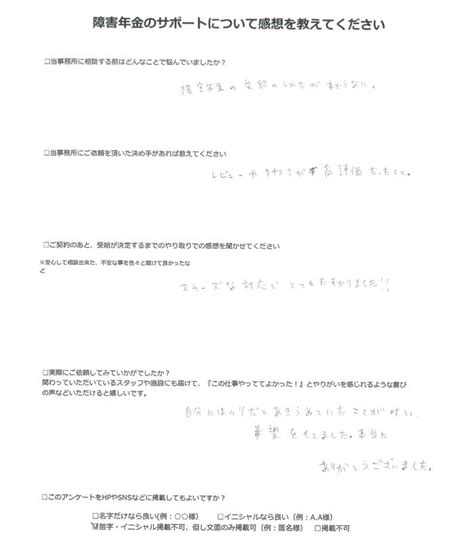 障害年金のサポートについて感想を教えてください
□当事務所に相談する前はどんなことで悩んでいましたか？
障害年金の受給のしかたがわからない。
□当事務所にご依頼を頂いた決め手があれば教えてください
レビューやうわさが高評価だったこと。
□ご契約のあと、受給が決定するまでのやり取りでの感想を聞かせてください
※安心して相談出来た、不安な事を色々と聞けて良かったな
ど
スムーズな対応でとてもたすかりました!!
□実際にご依頼してみていかがでしたか？
関わっていただいているスタッフや施設にも届けて、『この仕事やっててよかった！』とやりがいを感じれるような喜び
の声などいただけると嬉しいです。
自分にはムリだとあきらめていたことが叶い、
希望をもてました。本当に
ありがとうございました。
□このアンケートをHPやSNSなどに掲載してもよいですか？
□名字だけなら良い(例：○○様) □イニシャルなら良い（例：A.A様）
☑苗字・イニシャル掲載不可、但し文面のみ掲載可（例：匿名様） □掲載不可